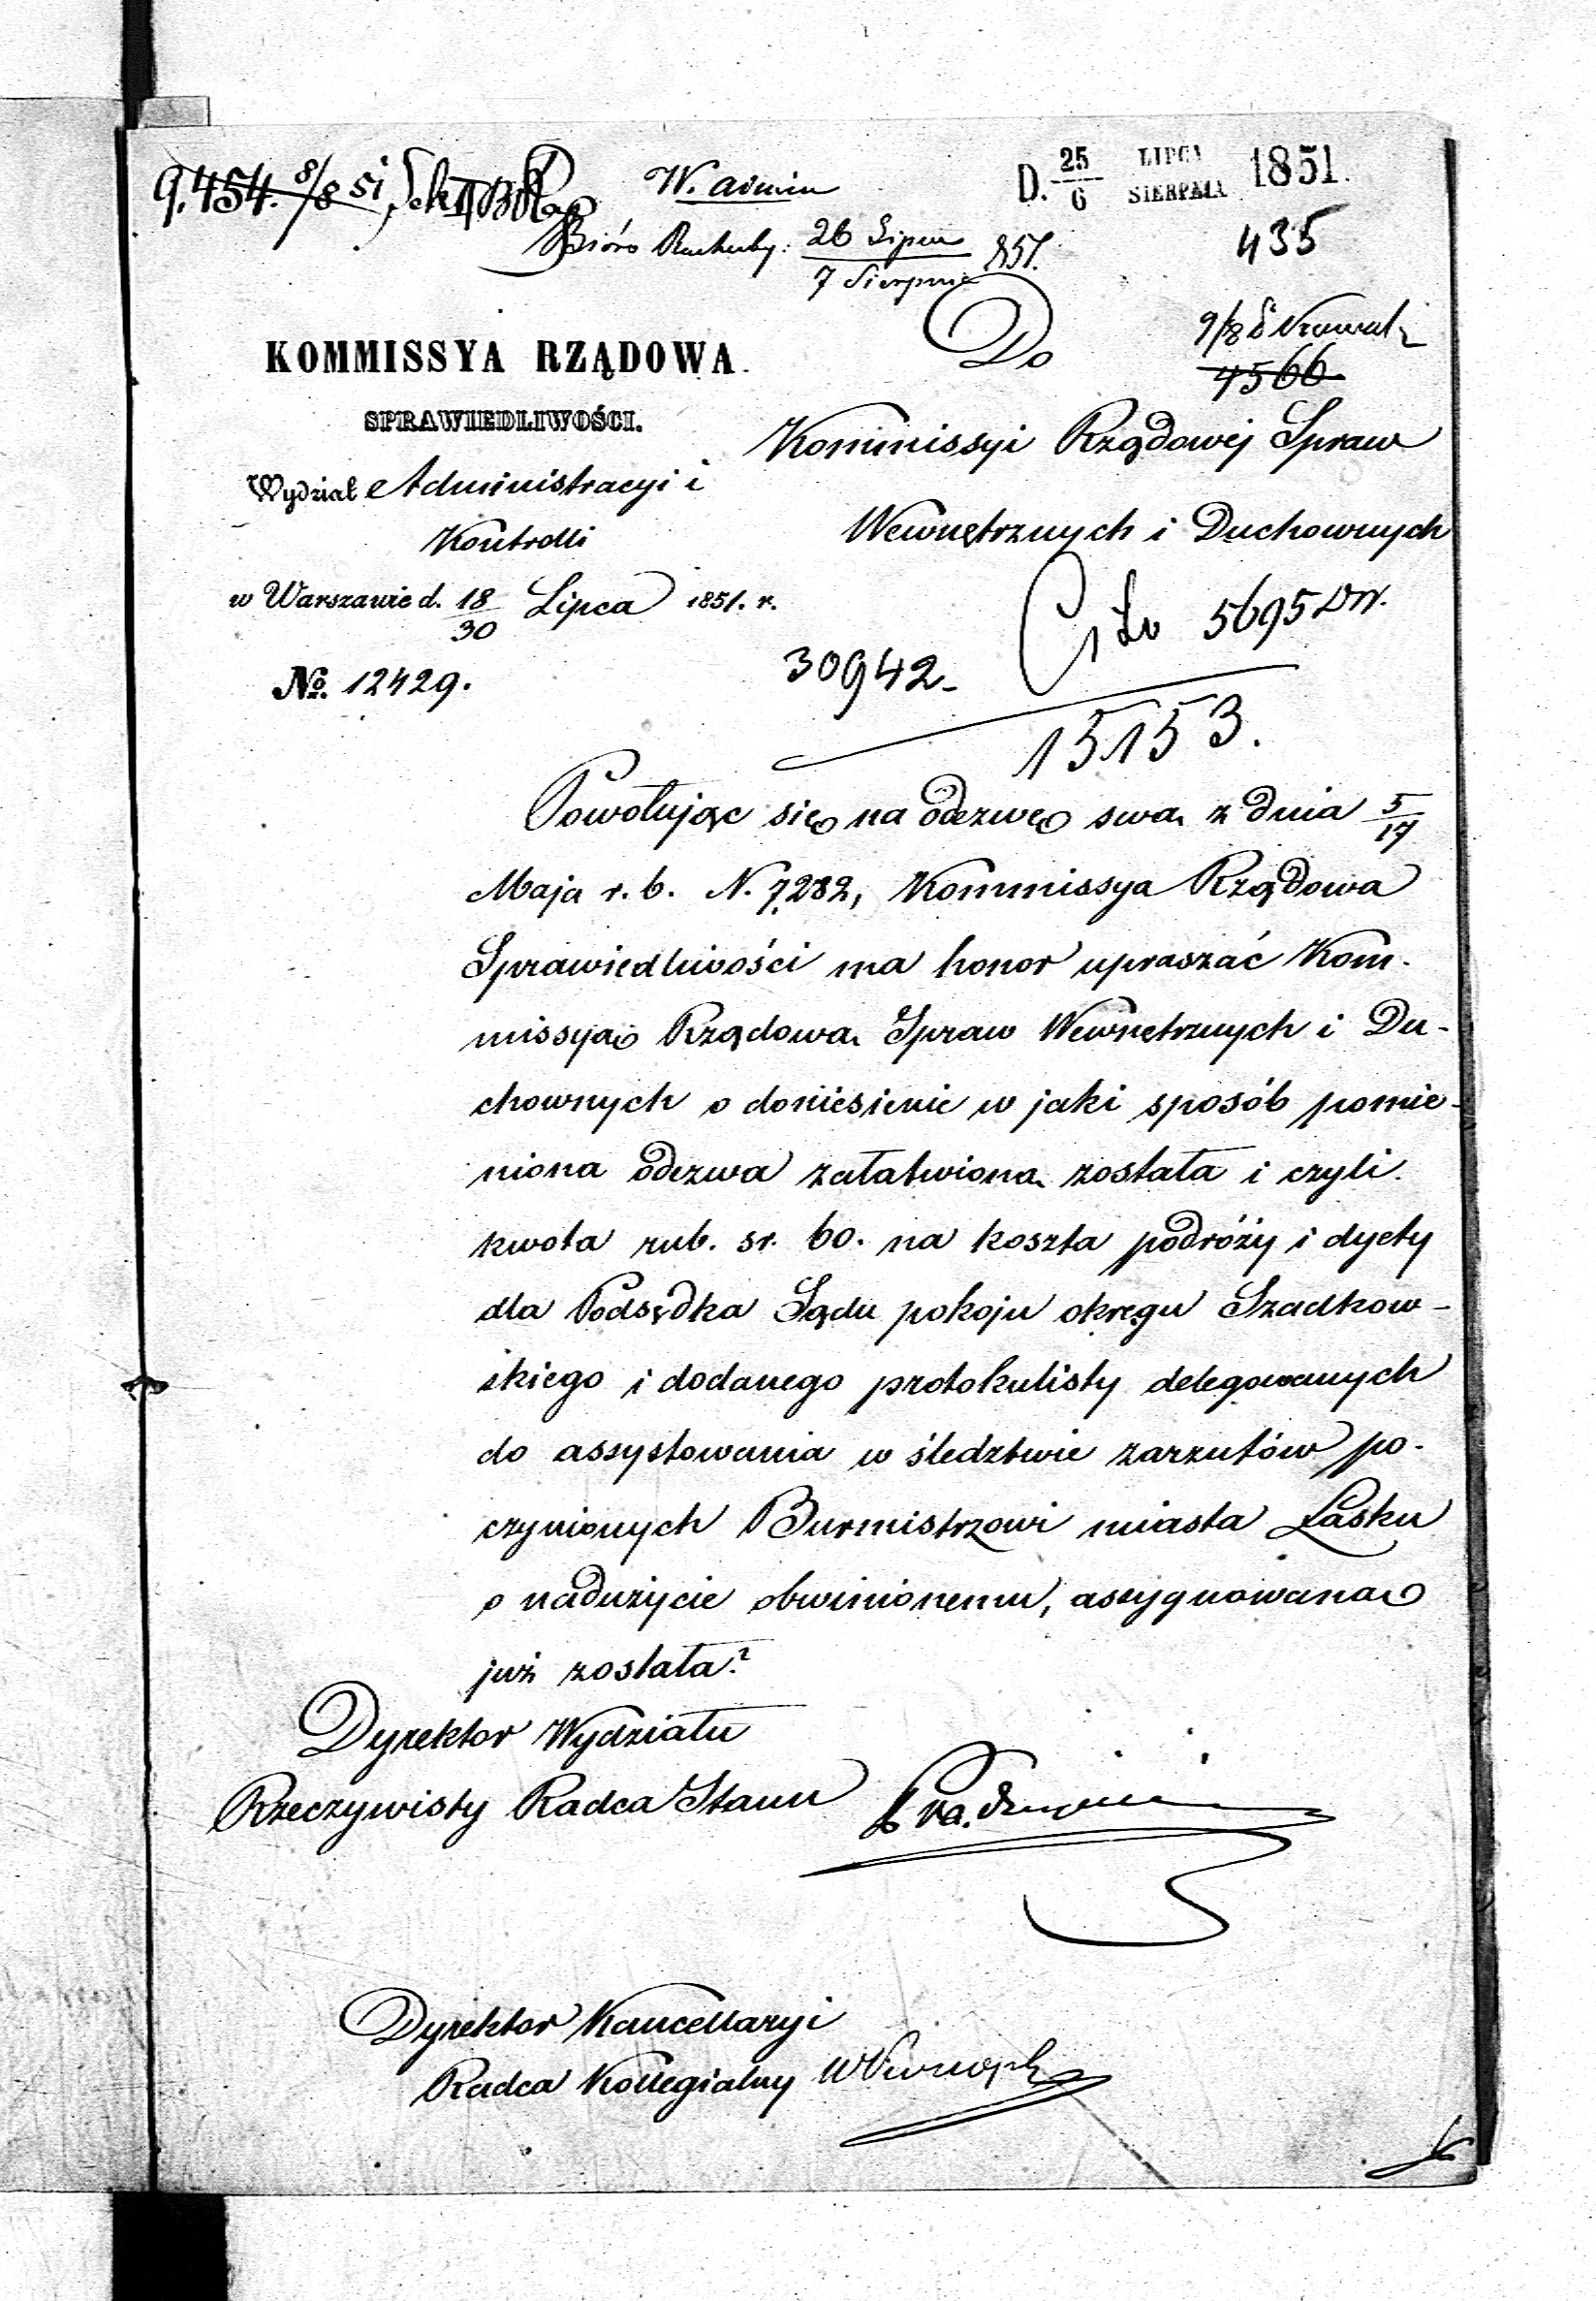 9.454. 8/8 51
W. admin
D. 25/6 LIPCA SIERPNIA 1851.
Bióro Rachuby: 26 Lipca / 7 Sierpnia 851.
435
Do
9/8
4566.
KOMMISSYA RZĄDOWA
SPRAWIEDLIWOŚCI.
Kommissyi Rządowéj Spraw
Wydział Administracyi i
Wewnętrznych i Duchownych
Kontrolli
w Warszawie d. 18/30 Lipca 1851. r.
5695
30942.
No. 12429.
15153.
Powołując się na odezwę swą z dnia 5/17
Maja r. b. N. 7282, Kommissya Rządowa
Sprawiedliwości ma honor upraszać Kom-
missyą Rządową Spraw Wewnętrznych i Du-
chownych o doniesienie w jaki sposób pomie-
niona odezwa załatwioną została i czyli
kwota rub. sr. 60. na koszta podróży i dyety
dla Podsędka Sądu pokoju okręgu Szadkow-
skiego i dodanego protokulisty delegowanych
do assystowania w śledztwie zarzutów po-
czynionych Burmistrzowi miasta Łasku
o nadużycie obwinionemu, assygnowaną
już została?
Dyrektor Wydziału
Rzeczywisty Radca Stanu
Dyrektor Kancellaryi
Radca Kollegialny